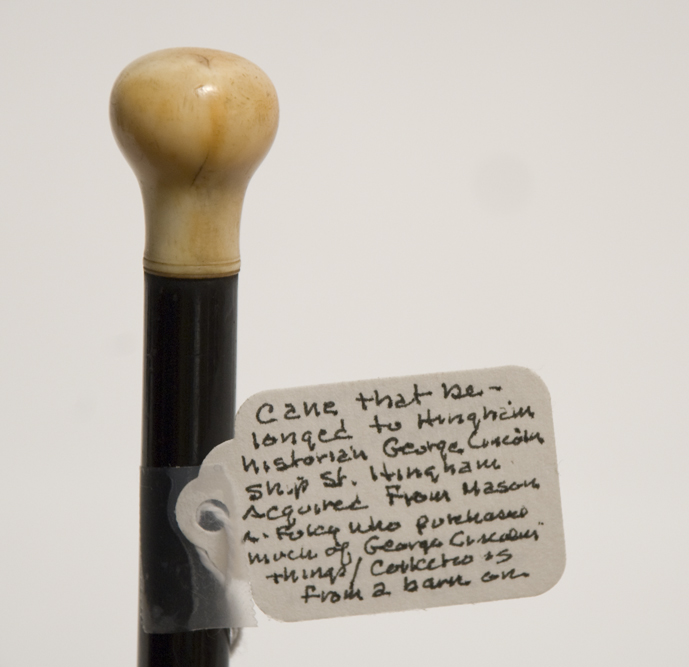 Cane that be-
longed to Hingham
historian George Lincoln
Ship St. Hingham
Acquired From Mason
Foley who purchased
much of George Lincoln
things/
from a barn on